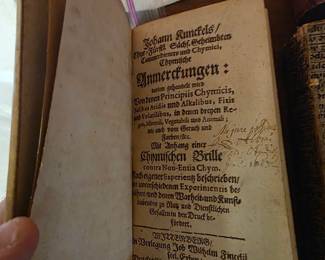 Johann Kunckels/
Chur-Fürstl. Sächs. Geheimbten
Cammerdieners und Chymici,
Chymische
Anmerckungen:
darinn gehandelt wird
Von denen Principiis Chymicis,
Salibus Acidis und Alkalibus, Fixis
und Volatilibus, in denen dreyen Re-
gnis, Minerali, Vegetabili und Animali;
wie auch vom Geruch und
Farben/&c.
Mit Anhang einer
Chymischen Brille
contra Non-Entia Chym.
Nach eigener Experientz beschrieben/
mit unterschiedenen Experimentis be-
währet/und denen Warheit- und Kunst-
liebenden zu Nutz und Dienstlichen
Gefallen in den Druck be-
fördert.
WITTENBERG/
In Verlegung Job Wilhelm Fincelii